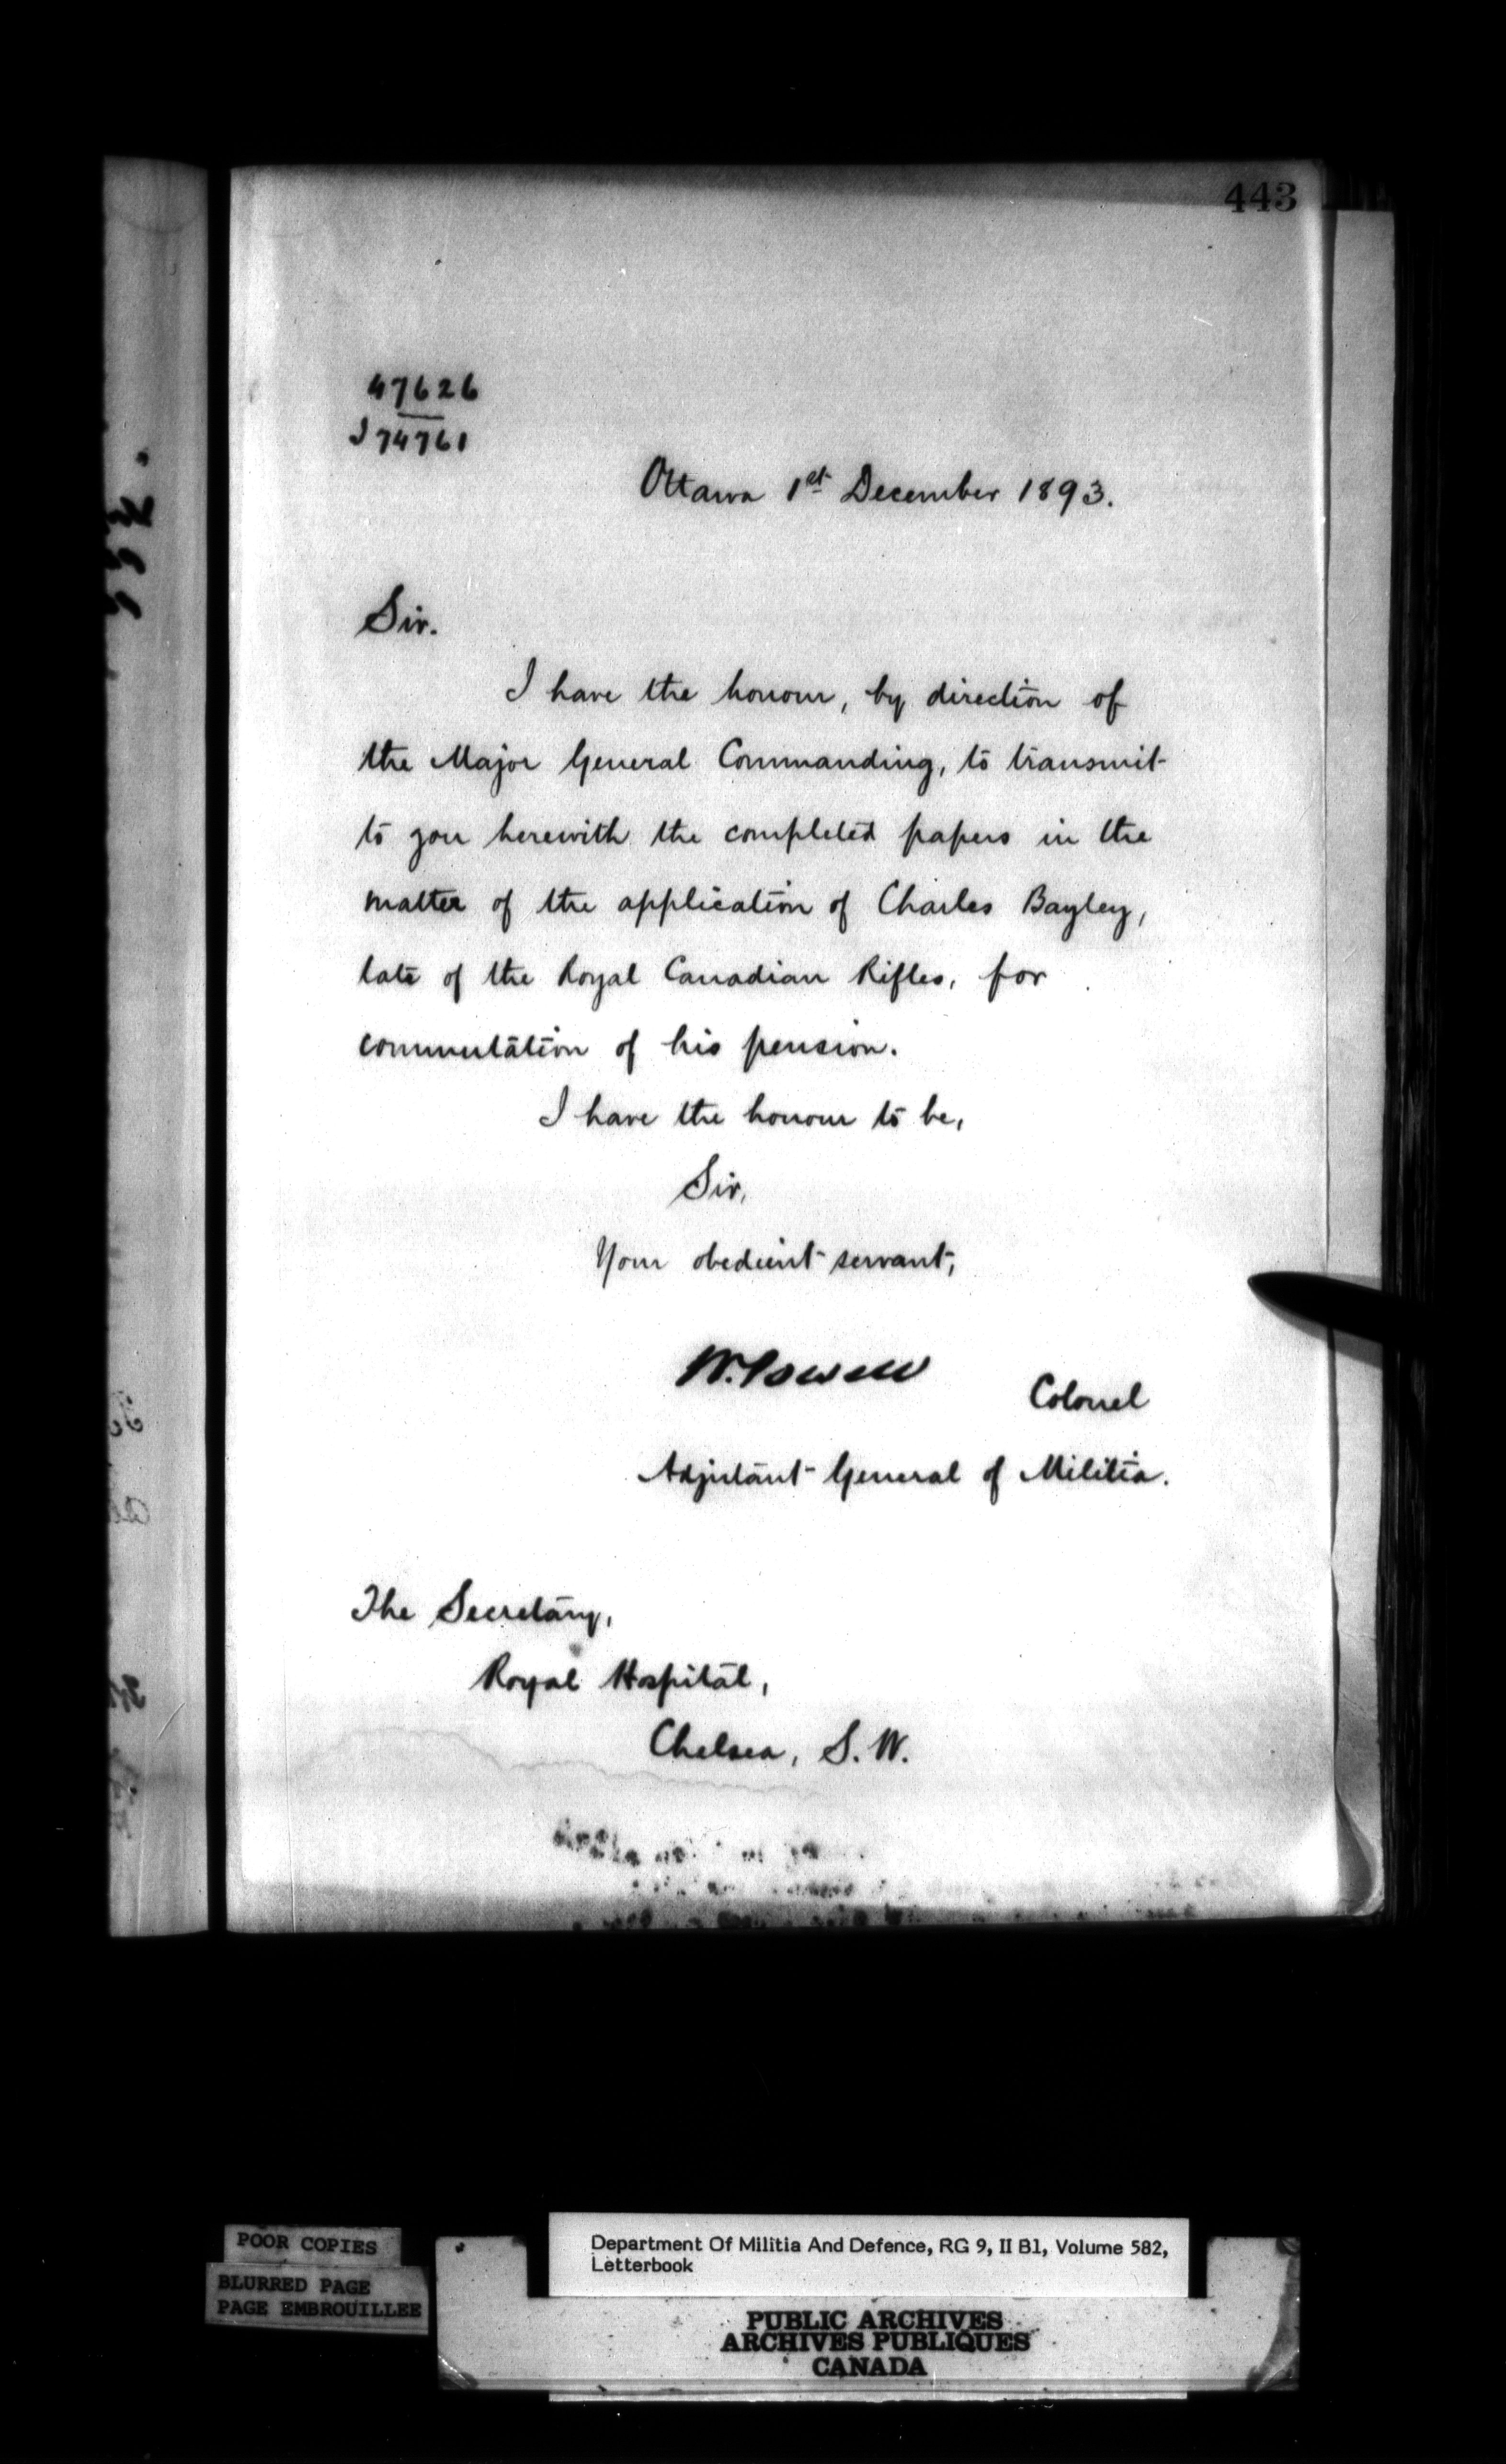 443
47626
J 74761
Ottawa 1st December 1893.
Sir.
I have the honour, by direction of
the Major General Commanding, to transmit
to you herewith the completed papers in the
matter of the application of Charles Bayley,
late of the Royal Canadian Rifles, for
commutation of his pension.
I have the honour to be,
Sir,
Your obedient servant,
W. Powell
Colonel
Adjutant General of Militia.
The Secretary,
Royal Hospital,
Chelsea, S.W.
POOR COPIES
BLURRED PAGE
PAGE EMBROUILLEE
Department Of Militia And Defence, RG 9, II B1, Volume 582,
Letterbook
PUBLIC ARCHIVES
ARCHIVES PUBLIQUES
CANADA